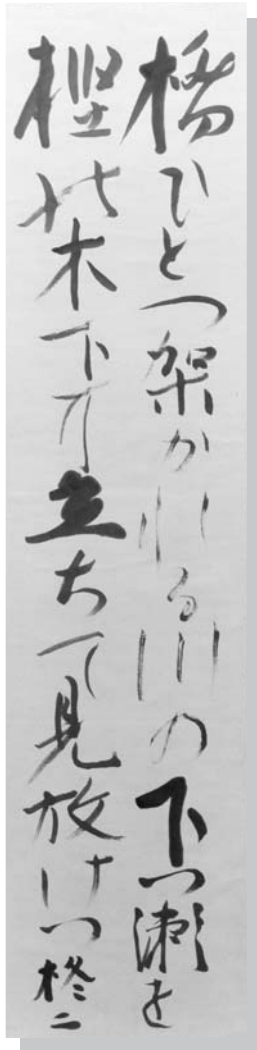 橋ひとつ架かれる川の下つ瀬を
樫の木下に立ちて見放けつ 柊二